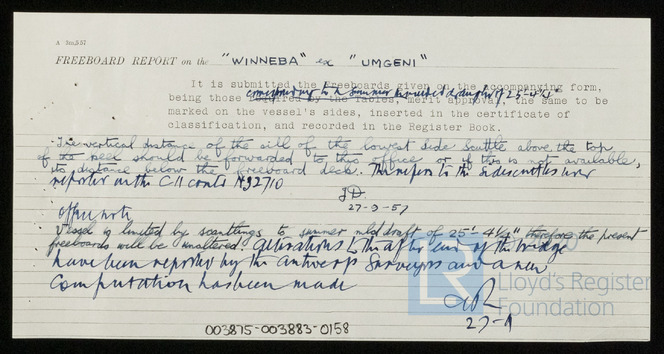 A 3m,5.57
FREEBOARD REPORT on the "WINNEBA" ex "UMGENI"
It is submitted the freeboards given on the accompanying form,
corresponding to a summer moulded draught of 25'-4¼"
being those required by the Tables, merit approval, the same to be
marked on the vessel's sides, inserted in the certificate of
classification, and recorded in the Register Book.
The vertical distance of the sill of the lowest side scuttle above the top
of keel should be forwarded to this office or if this is not available,
its distance below the freeboard deck. This refers to the sidescuttles
reported on the C11 contd No 92710
JD.
27-9-57
Office note
Vessel is limited by scantlings to summer mld draft of 25'-4¼" therefore the present
freeboards will be unaltered. Alterations to the after end of the bridge
have been reported by the Antwerp Surveyors and a new
Computation has been made
27-9
Lloyd's Register
Foundation
LR
003875-003883-0158